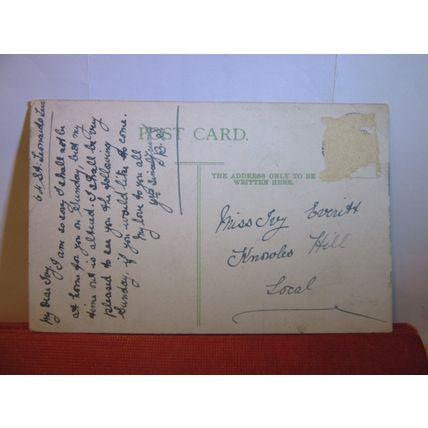 POST CARD.
THE ADDRESS ONLY TO BE
WRITTEN HERE.
Miss Ivy Everitt
Knowles Hill
Local
64 St Leonards
My dear Ivy
I am so sorry I shall not be
at home for you on Sunday, but my
time out is altered. I shall be very
pleased to see you the following
Sunday. if you would like to come.
My love to you all
Yrs Sincerely